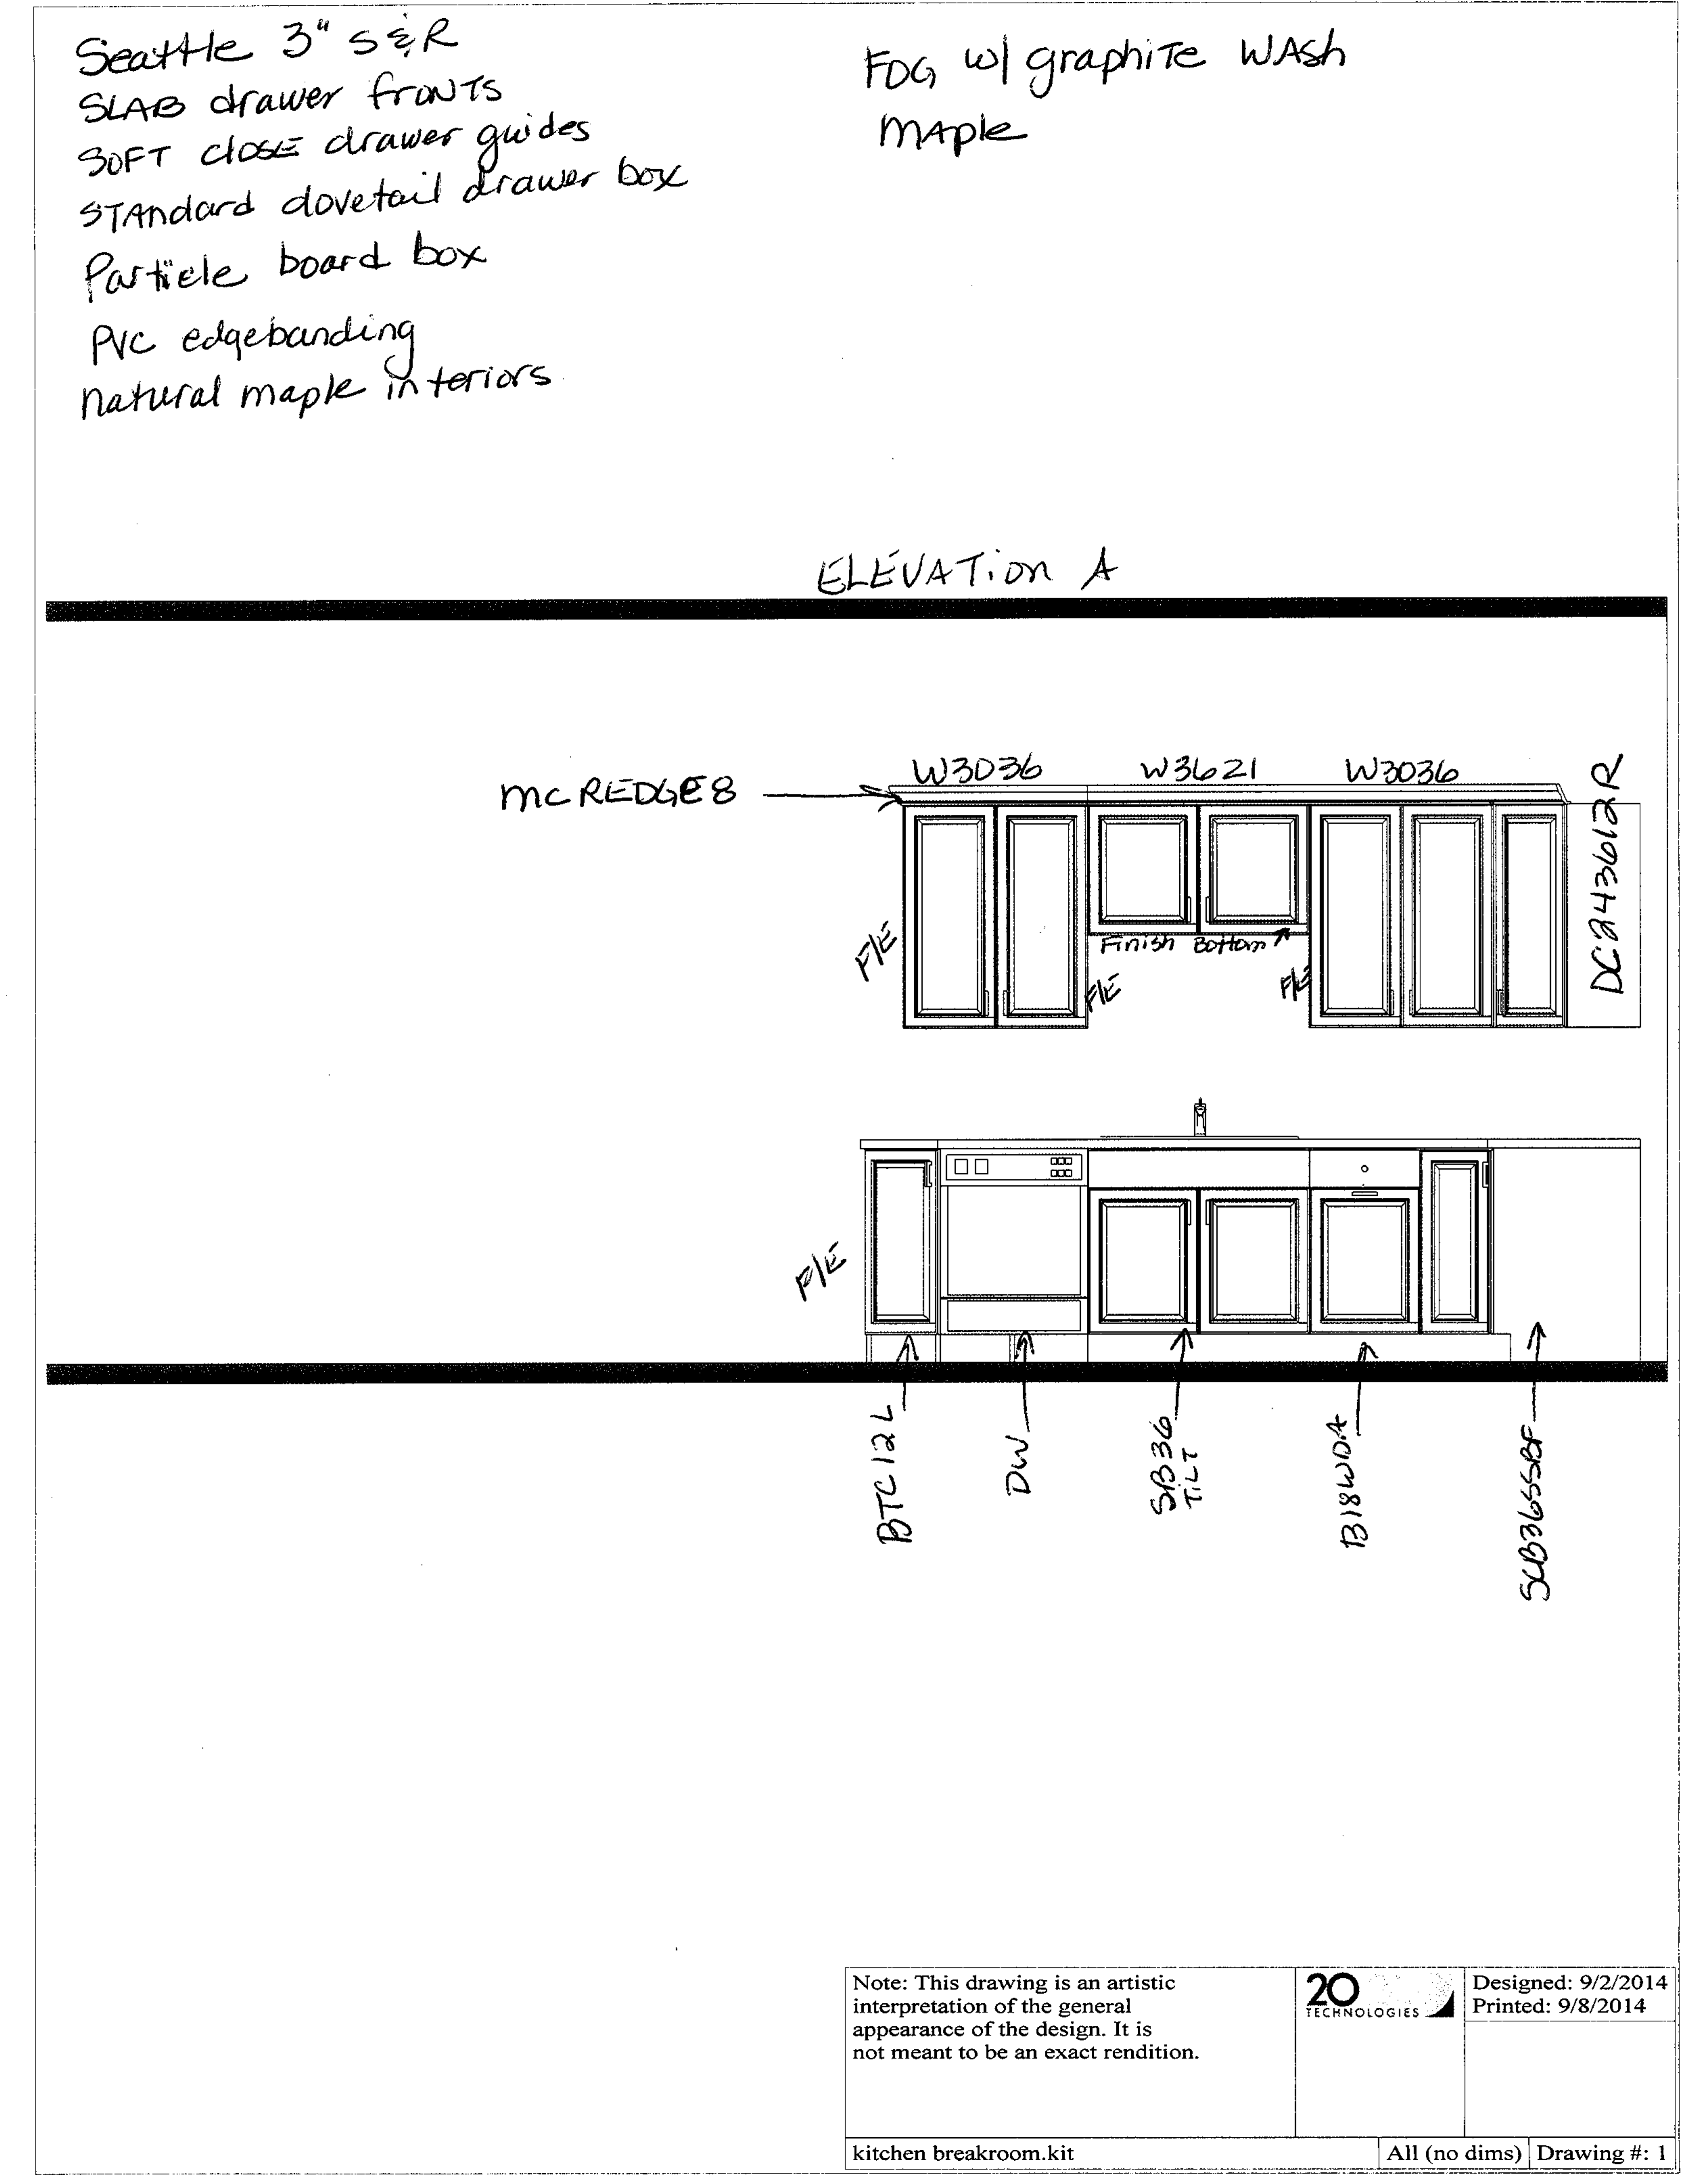 Seattle 3" S & R
SLAB drawer fronts
SOFT close drawer guides
STANdard dovetail drawer box
Particle board box
PVC edgebanding
natural maple interiors
FOG w/ graphite WASh
MAple
ELEVATion A
W3036 W3621 W3036
MCREDGE8
DC243612R
F/E
Finish Bottom
F/E
F/E
F/E
BTC12L
DW
SB36
TiLT
B18WDA
SCB36SSBF
Note: This drawing is an artistic
interpretation of the general
appearance of the design. It is
not meant to be an exact rendition.
20
TECHNOLOGIES
Designed: 9/2/2014
Printed: 9/8/2014
kitchen breakroom.kit
All (no dims)
Drawing #: 1